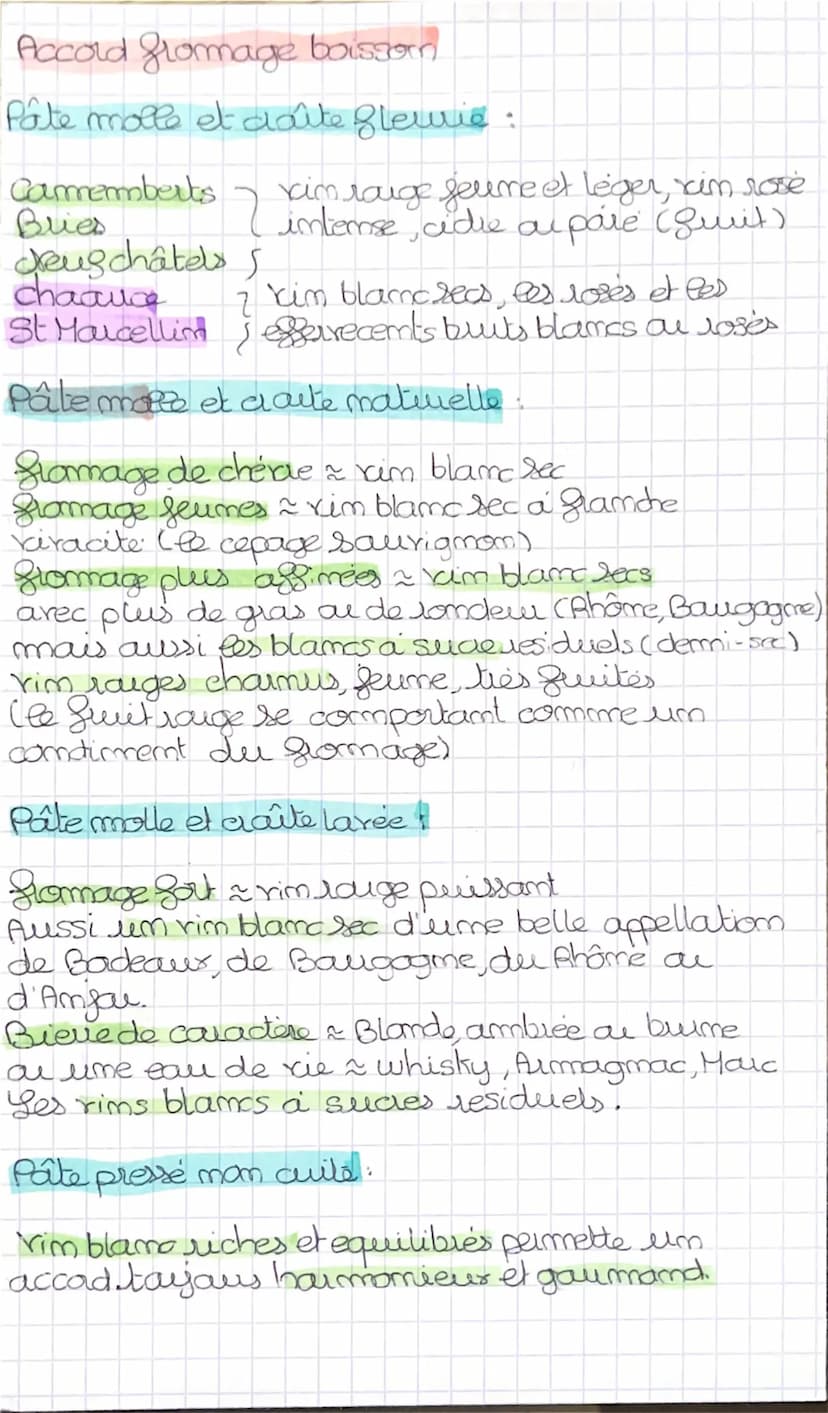 Accord fromage boisson
Pâte molle et croûte fleurie :
Camemberts } vin rouge jeune et léger, vin rosé
Bries } intense, cidre ou poiré (fruit)
Neufchâtels }
Chaource } vin blanc secs, les rosés et les
St Marcellin } effervecents bruts blancs ou rosés
Pâte molle et croute naturelle :
fromage de chévre ≈ vin blanc sec
fromage jeunes ≈ vin blanc sec à franche
vivacite (le cepage sauvignon)
fromage plus affinées ≈ vin blanc secs
avec plus de gras ou de rondeur (Rhône, Bourgogne)
mais aussi les blancs à sucre residuels (demi-sec)
vin rouges charnus, jeune, très fruités
(le fruit rouge se comportant comme un
condiment du fromage)
Pâte molle et croûte lavée :
fromage fort ≈ vin rouge puissant
Aussi un vin blanc sec d'une belle appellation
de Bordeaux, de Bourgogne, du Rhône ou
d'Anjou.
Bierre de caractère ≈ Blonde, ambrée ou brune
ou une eau de vie ≈ whisky, Armagnac, Marc
Les vins blancs à sucres residuels.
Pâte pressé non cuite :
Vin blanc riches et equilibrés permette un
accord toujours harmonieux et gourmand.